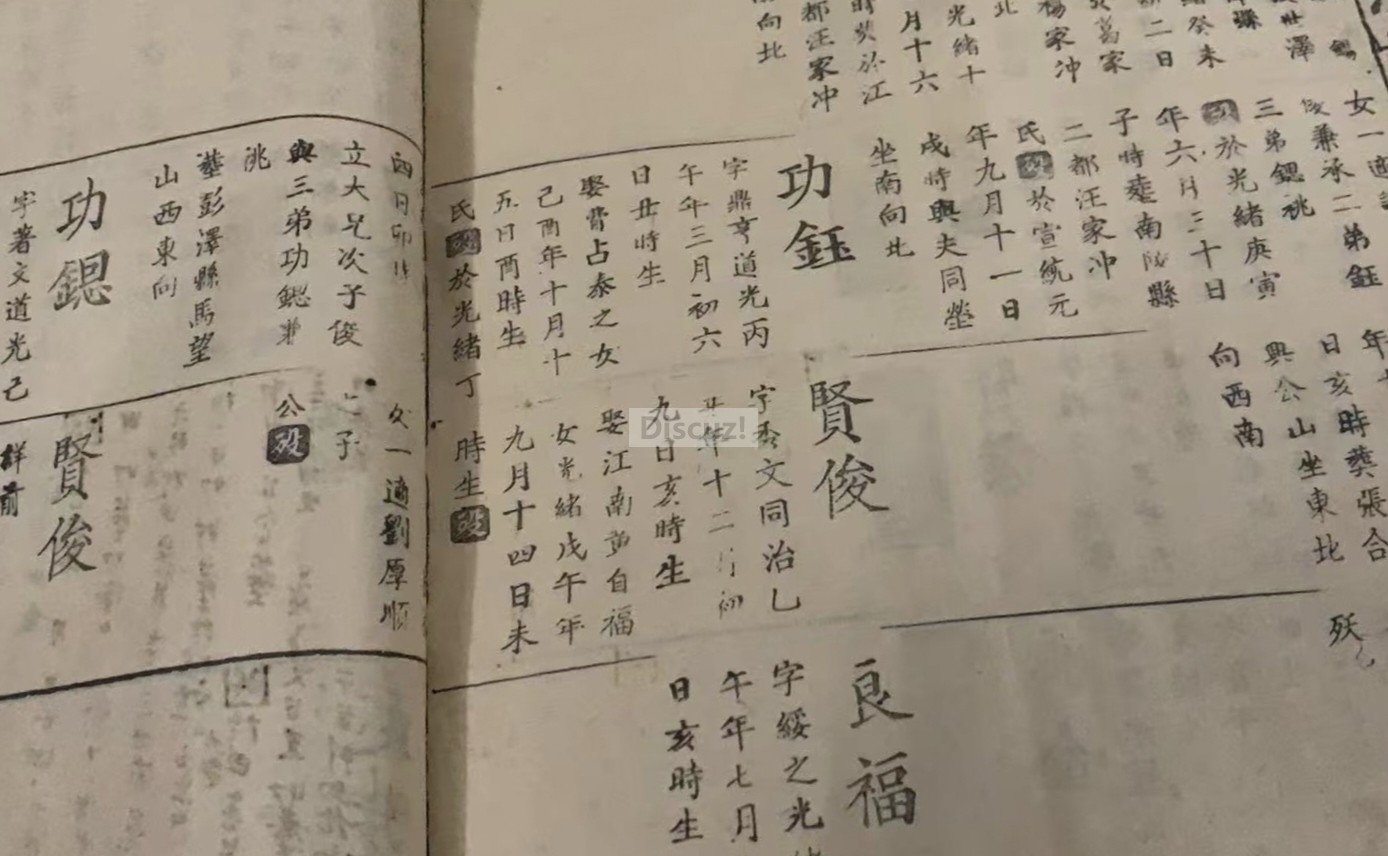 澤
癸未
二日
葛家
楊家冲
北
光緒十
月十六
時葬於江
都汪家冲
向北
女一適
兼承二弟鈺
三弟鍶祧
殁於光緒庚寅
年六月三十日
子時塟南陵縣
二都汪家冲
氏殁於宣統元
年九月十一日
戌時與夫同塋
坐南向北
功鈺
字鼎亨道光丙
午年三月初六
日丑時生
娶曹占泰之女
己酉年十月十
五日酉時生
氏殁於光緒丁
年
日亥時葬張合
與公山坐東北
向西南
賢俊
字秀文同治乚
年十二月初
九日亥時生
娶江南黄自福
女光緒戊午年
九月十四日未
時生殁
殀
良福
字綏之光
午年七月
日亥時生
日卯
立大兄次子俊
與三弟功鍶兼
祧
塟彭澤縣馬望
山西東向
功鍶
字著文道光己
女一適劉厚順
子
公殁
賢俊
詳前
Discuz!